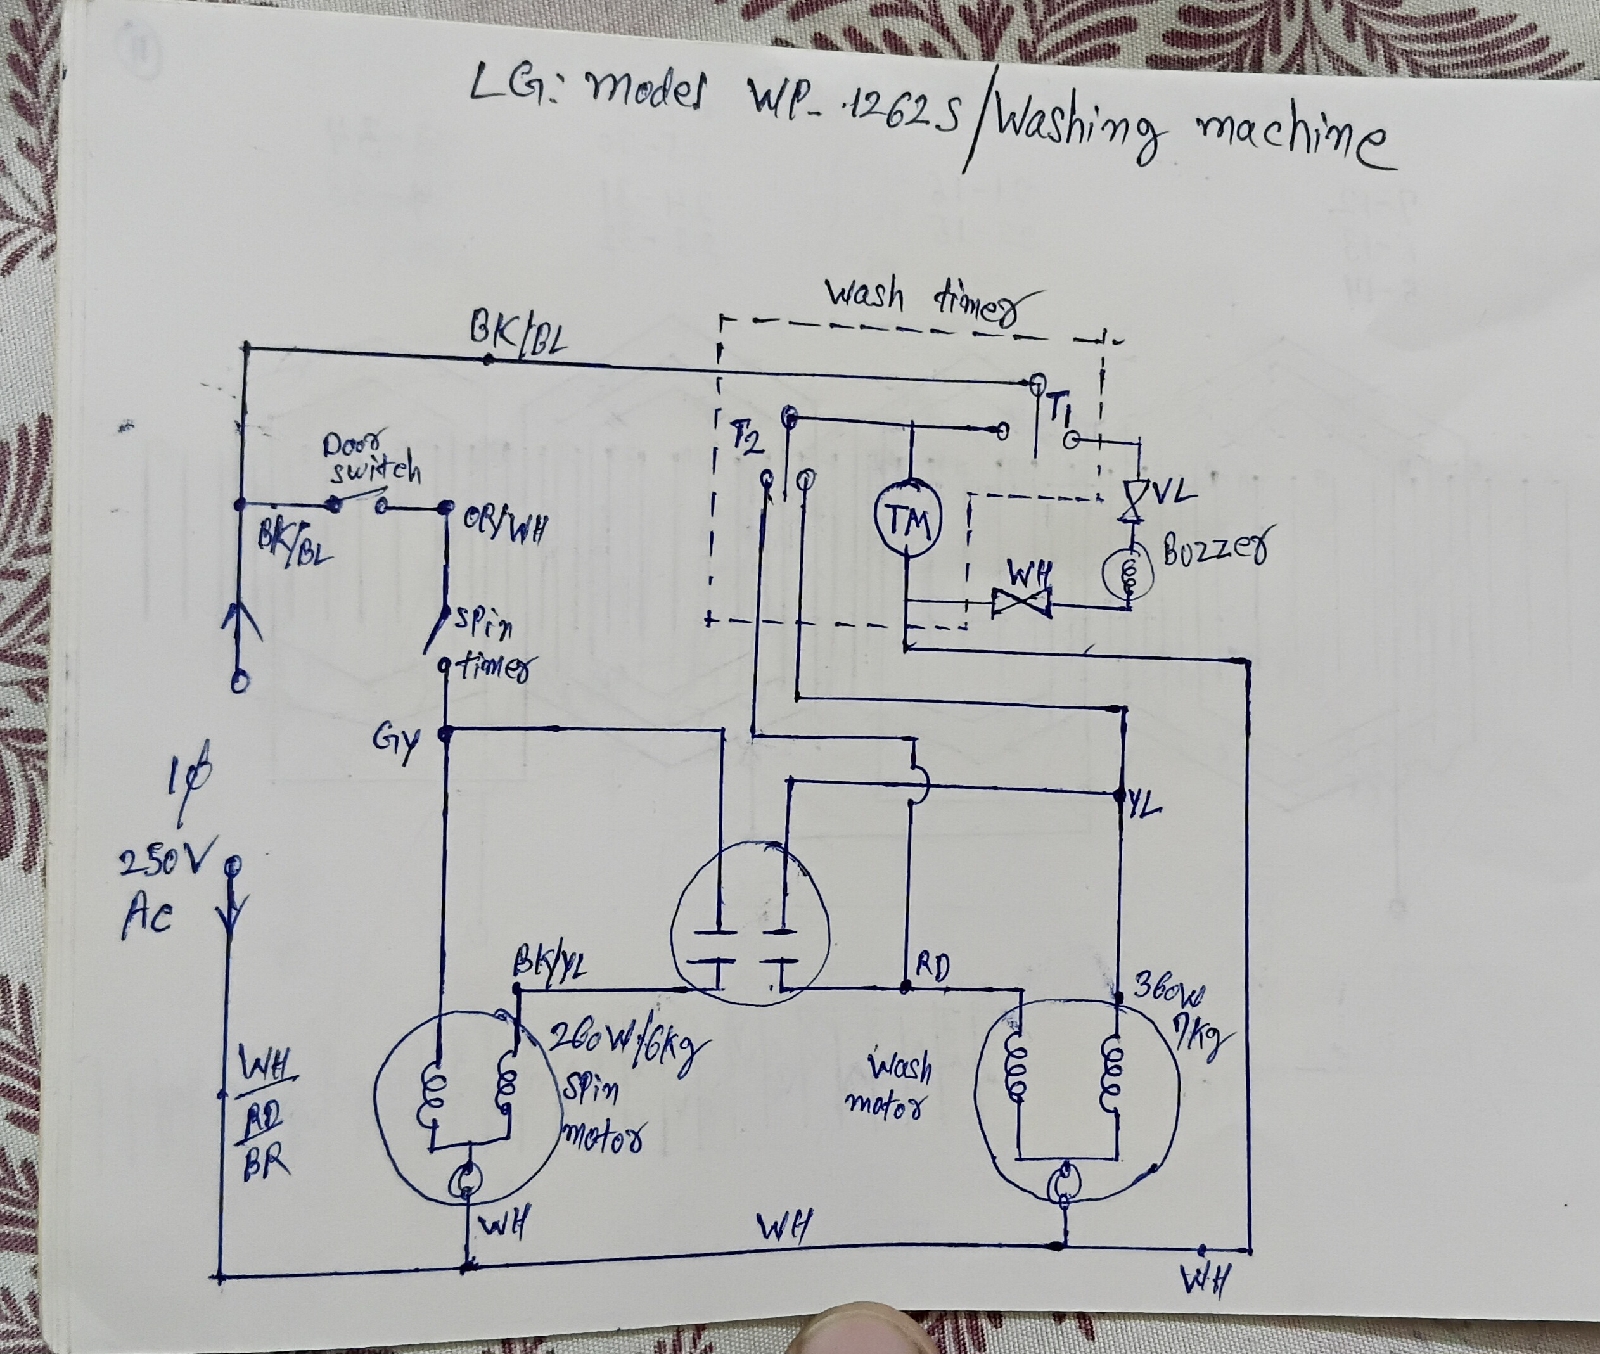 LG: Model WP-1262S/Washing machine
wash timer
BK/BL
T1
T2
Door
switch
OR/WH
BK/BL
TM
VL
Buzzer
WH
spin
timer
Gy
1ϕ
250V
AC
YL
BK/YL
RD
360W
7kg
260W/6kg
spin
motor
wash
motor
WH
RD
BR
WH
WH
WH